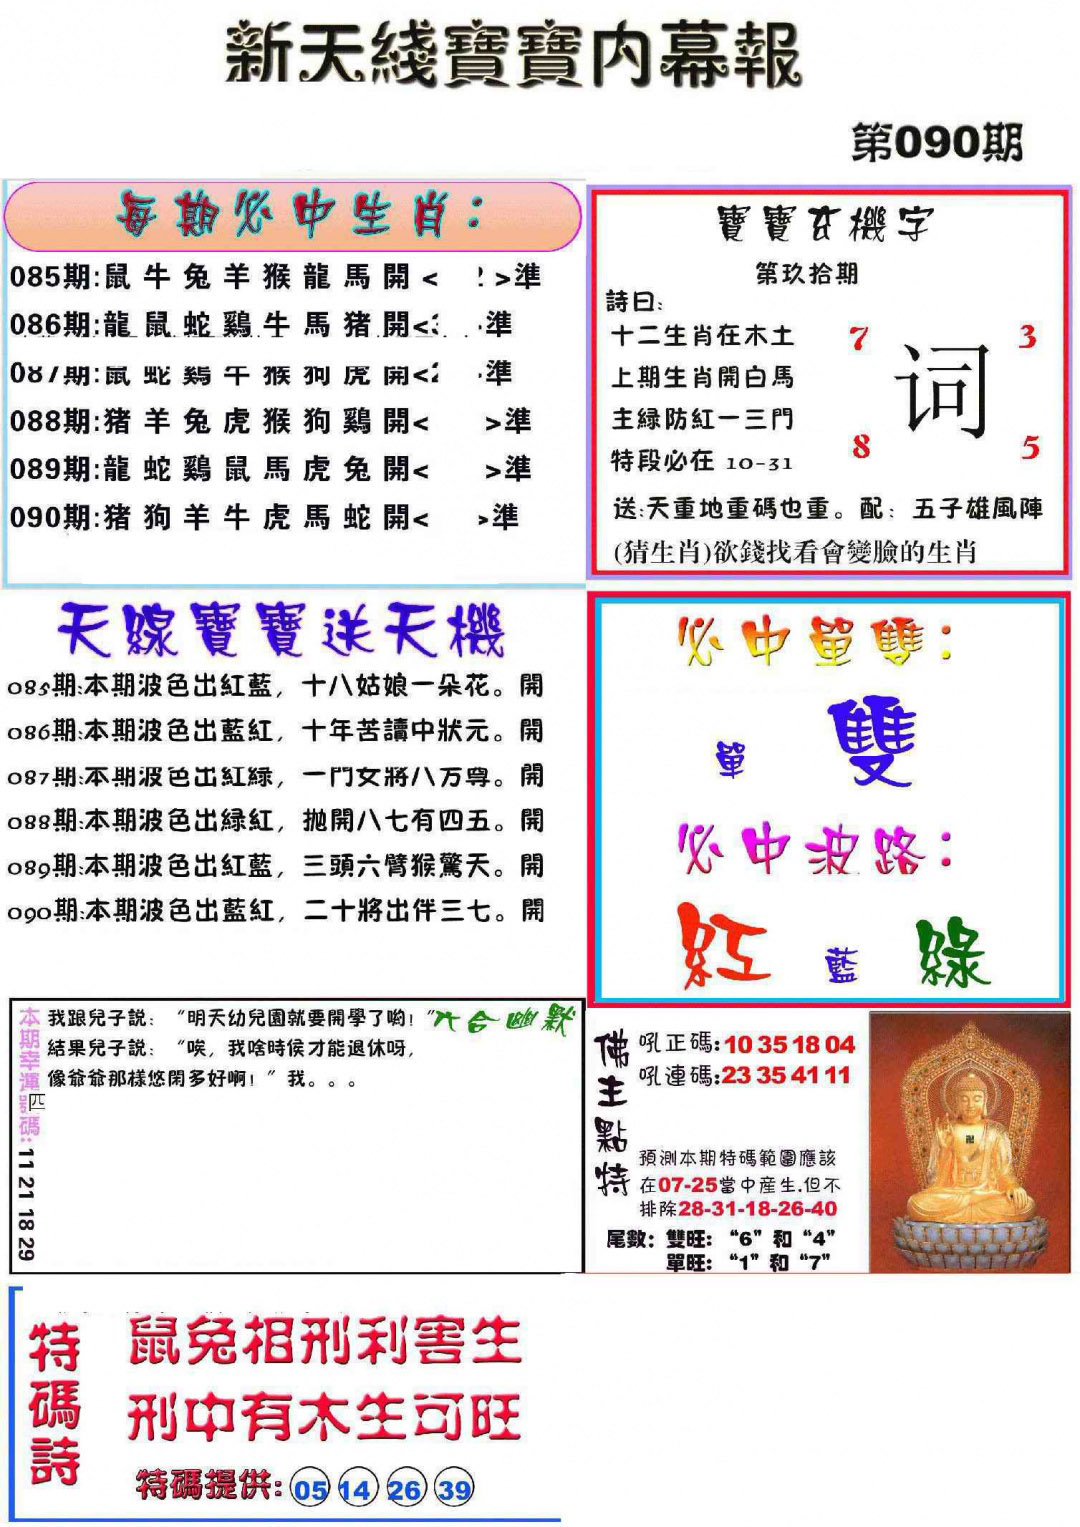 新天綫寶寶内幕報
第090期
每期必中生肖：
085期:鼠牛兔羊猴龍馬開< >準
086期:龍鼠蛇鷄牛馬猪開< 準
087期:鼠蛇鷄牛猴狗虎開< 準
088期:猪羊兔虎猴狗鷄開< >準
089期:龍蛇鷄鼠馬虎兔開< >準
090期:猪狗羊牛虎馬蛇開< >準
寶寶玄機字
第玖拾期
詩曰:
十二生肖在木土
上期生肖開白馬
主緑防紅一三門
特段必在 10-31
7 3
词
8 5
送:天重地重碼也重。配：五子雄風陣
(猜生肖)欲錢找看會變臉的生肖
天線寶寶送天機
085期:本期波色出紅藍，十八姑娘一朵花。開
086期:本期波色出藍紅，十年苦讀中狀元。開
087期:本期波色出紅緑，一門女將八万尊。開
088期:本期波色出緑紅，抛開八七有四五。開
089期:本期波色出紅藍，三頭六臂猴驚天。開
090期:本期波色出藍紅，二十將出伴三七。開
必中單雙：
單 雙
必中波路：
紅 藍 綠
本期幸運號碼:
四
11 21 18 29
六合幽默
我跟兒子説：“明天幼兒園就要開學了喲！”
結果兒子説：“唉，我啥時侯才能退休呀，
像爺爺那樣悠閑多好啊！”我。。。
佛主點特
吼正碼:10 35 18 04
吼連碼:23 35 41 11
預測本期特碼範圍應該
在07-25當中産生.但不
排除28-31-18-26-40
尾數：雙旺：“6”和“4”
單旺：“1”和“7”
特碼詩
鼠兔相刑利害生
刑中有木生可旺
特碼提供: 05 14 26 39